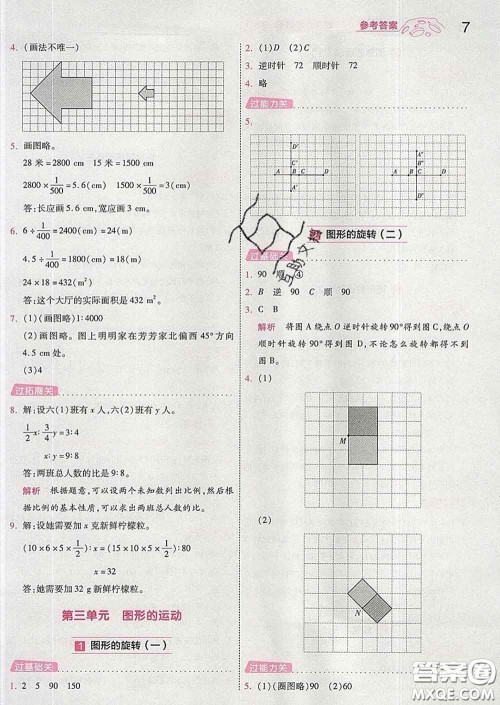 参考答案
7
4. (画法不唯一)
5. 画图略。
28 米=2800 cm 15 米=1500 cm
2800×1/500=5.6(cm) 1500×1/500=3(cm)
答:长应画 5.6 cm,宽应画 3 cm。
6. 6÷1/400=2400(cm)=24(m)
4.5÷1/400=1800(cm)=18(m)
24×18=432(m²)
答:这个大厅的实际面积是 432 m²。
7. (1)画图略。(1)1:4000
(2)画图略。图上明明家在芳芳家北偏西 45°方向
4.5 cm 处。
(3)4
过拓展关
8. 解:设六(1)班有 x 人,六(2)班有 y 人。
1/2x:3/4y=3:4
x:y=9:8
答:两班总人数的比是 9:8。
解析 根据题意,可以设两个未知数列出比例,然后根
据比例的基本性质,可以求出两班总人数的比。
9. 解:设她需要加 x 克新鲜柠檬粒。
(10×6×5×1/2):x=(15×10×5×1/2):80
x=32
答:她需要加 32 g 新鲜柠檬粒。
第三单元 图形的运动
1 图形的旋转(一)
过基础关
1. 2 5 90 150
2. (1)D (2)C
3. 逆时针 72 顺时针 72
4. 略
过能力关
5.
D'
B'
A B C D
A'
A B C
D'
A'
图形的旋转(二)
过基础关
1. 90 ④
2. B 逆 90 C 顺 90
3. C
解析 将图 A 绕点 O 逆时针旋转 90°得到图 C,绕点 O
顺时针旋转 90°得到图 D,不论怎么旋转都不能得
到图 B。
4. (1)
M
(2)
N
过能力关
5. (1)(画图略)90 (2)60
答案圈
MXQE.COM